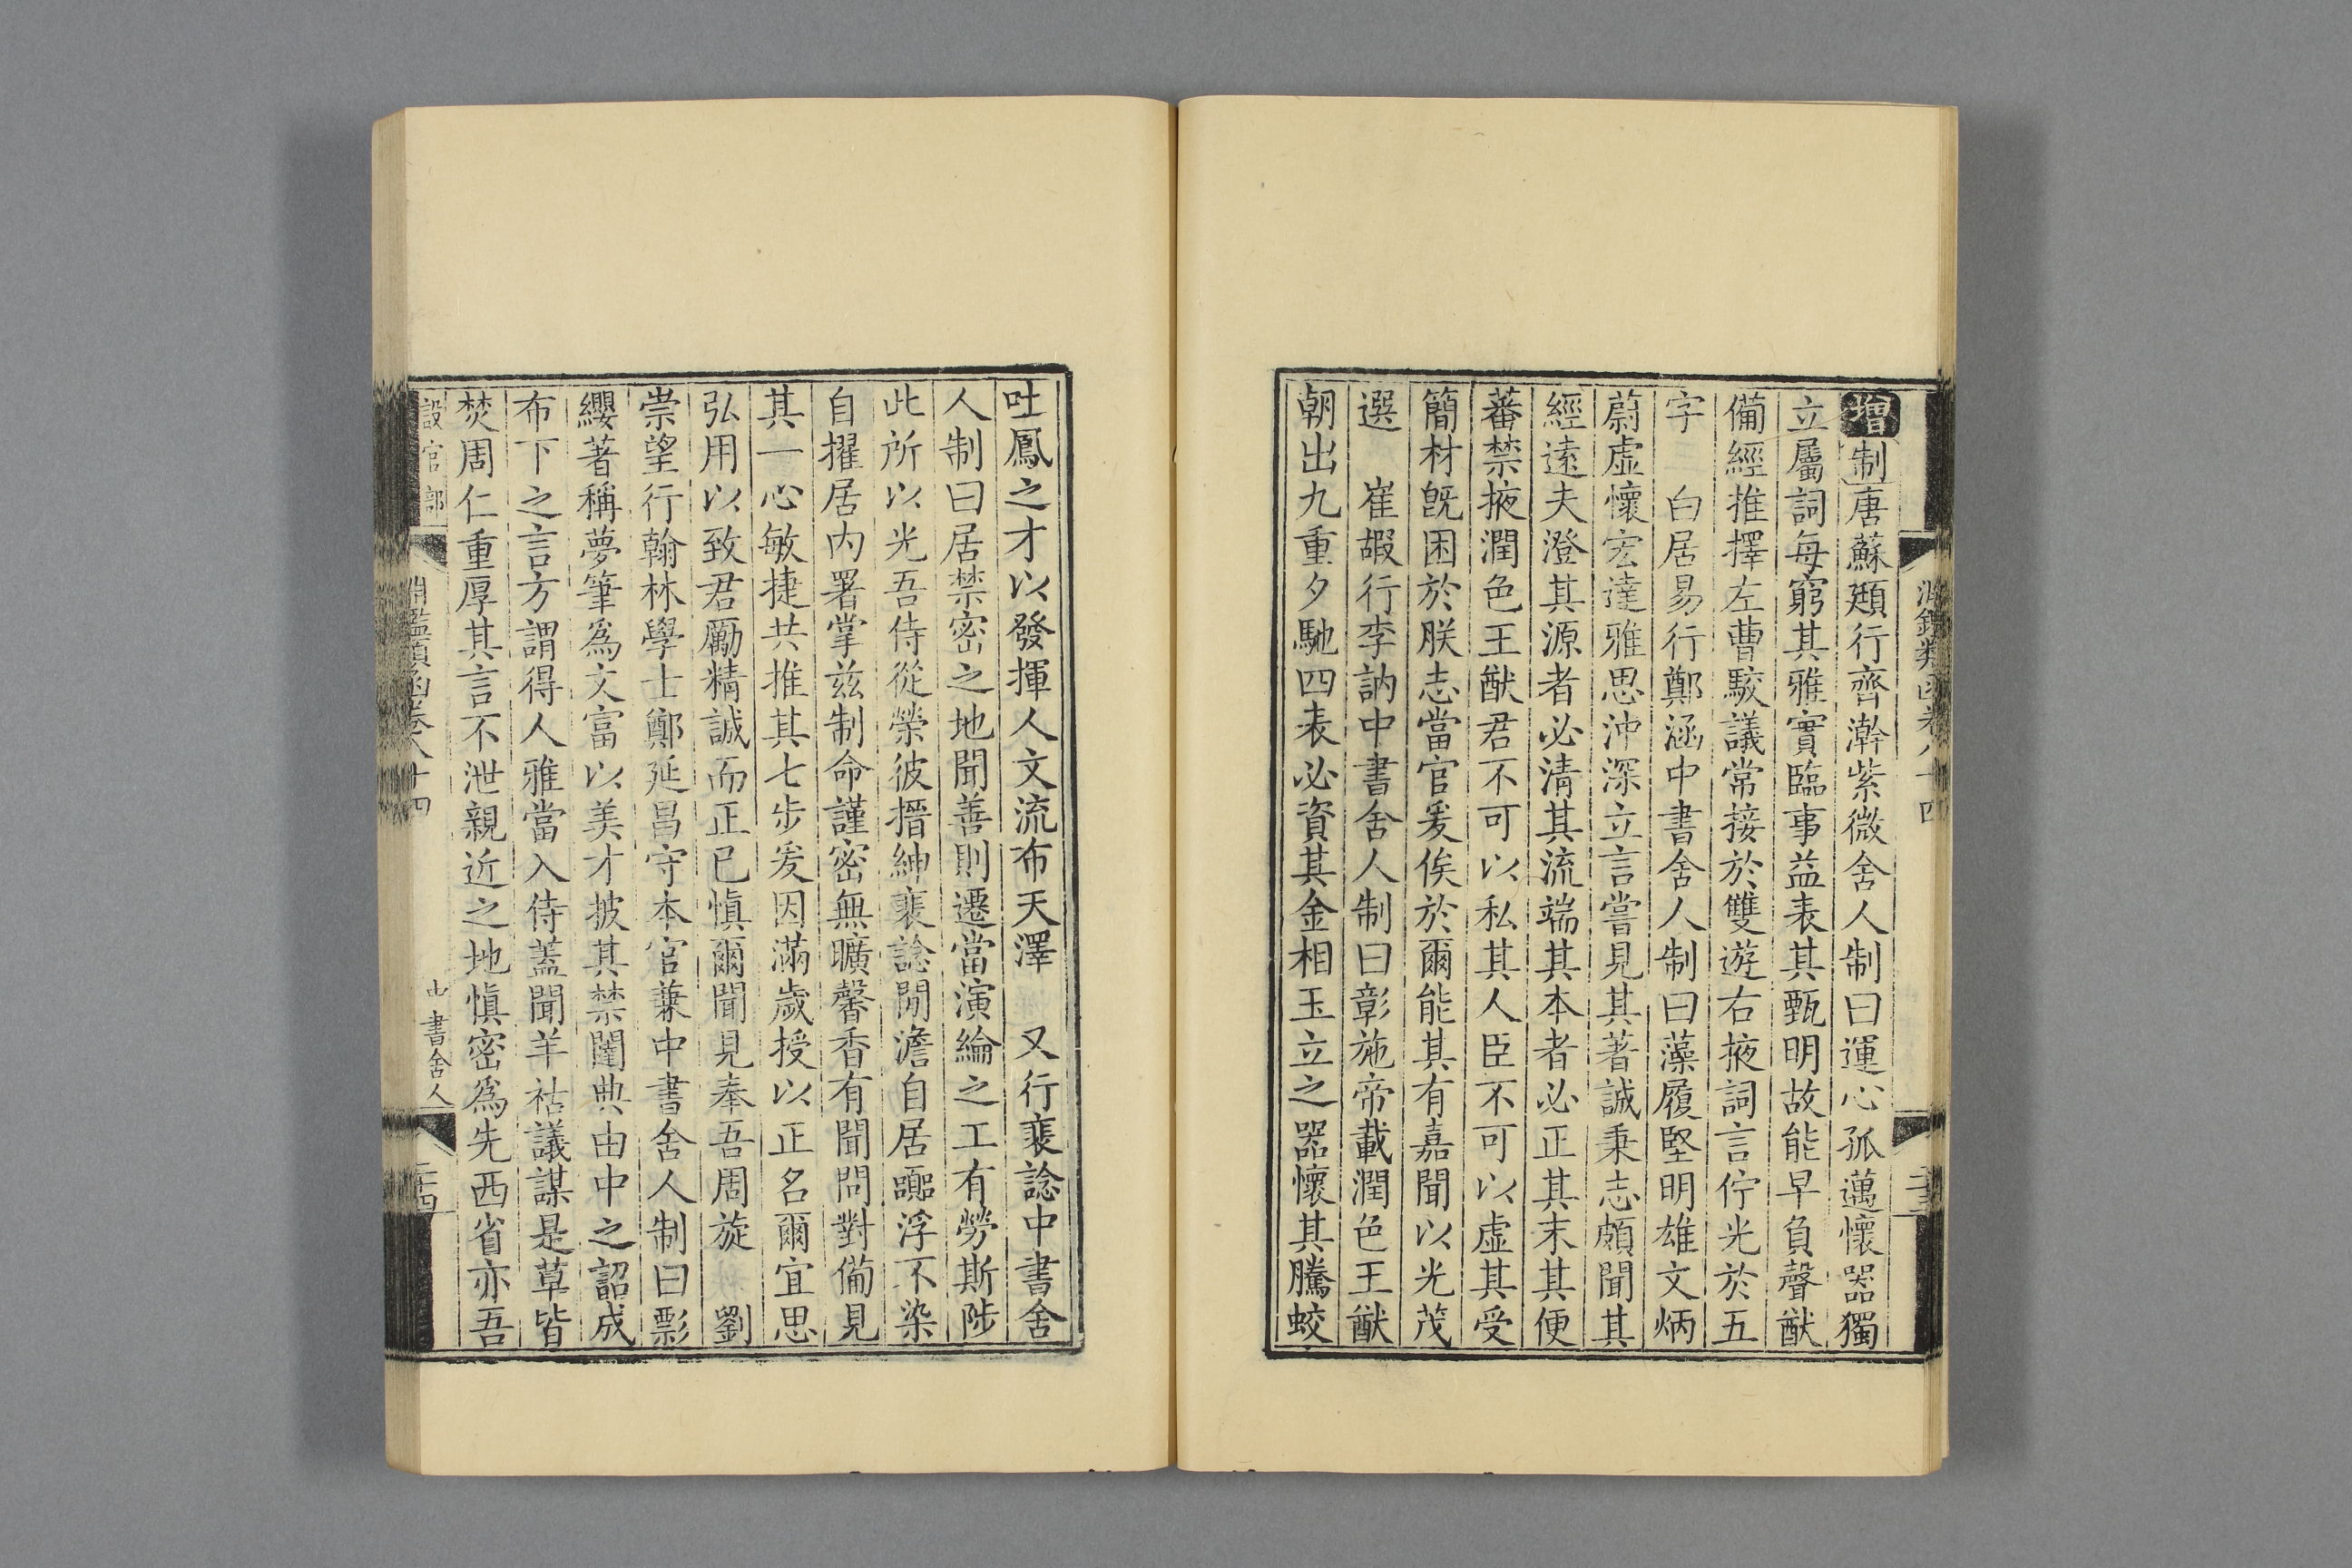 淵鑑類函卷八十四
二十三
增制唐蘇頲行齊澣紫微舍人制曰運心孤邁懷器獨
立屬詞每窮其雅實臨事益表其甄明故能早負聲猷
備經推擇左曹駮議常接於雙遊右掖詞言佇光於五
字　白居易行鄭涵中書舍人制曰藻履堅明雄文炳
蔚虛懷宏達雅思沖深立言嘗見其著誠秉志頗聞其
經遠夫澄其源者必清其流端其本者必正其末其便
蕃禁掖潤色王猷君不可以私其人臣不可以虛其受
簡材旣困於朕志當官爰俟於爾能其有嘉聞以光茂
選　崔嘏行李訥中書舍人制曰彰施帝載潤色王猷
朝出九重夕馳四表必資其金相玉立之器懷其騰蛟
吐鳳之才以發揮人文流布天澤　又行裴諗中書舍
人制曰居禁密之地聞善則遷當演綸之工有勞斯陟
此所以光吾侍從榮彼搢紳裴諗閒澹自居嚚浮不染
自擢居內署掌兹制命謹密無曠馨香有聞問對備見
其一心敏捷共推其七步爰因滿歲授以正名爾宜思
弘用以致君勵精誠而正已慎爾聞見奉吾周旋　劉
崇望行翰林學士鄭延昌守本官兼中書舍人制曰彯
纓著稱夢筆爲文富以美才披其禁闥典由中之詔成
布下之言方謂得人雅當入侍蓋聞羊祜議謀是草皆
焚周仁重厚其言不泄親近之地慎密爲先西省亦吾
設官部
淵鑑類函卷八十四
中書舍人
二十四